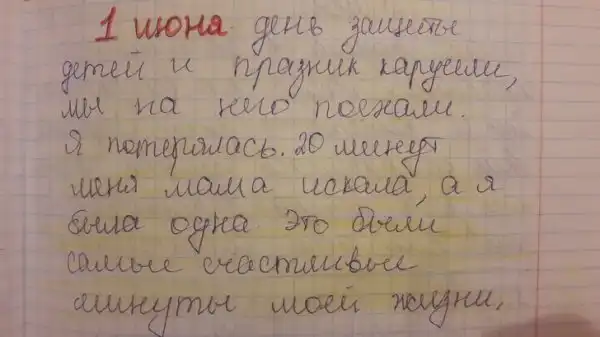 1 июня день защиты
детей и празник карусели,
мы на него поехали.
Я потерялась. 20 минут
меня мама искала, а я
была одна. Это были
самые счастливые
минуты моей жизни,